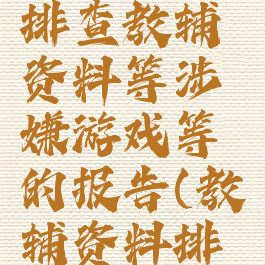 排查教辅
资料等涉
嫌游戏等
的报告(教
辅资料排